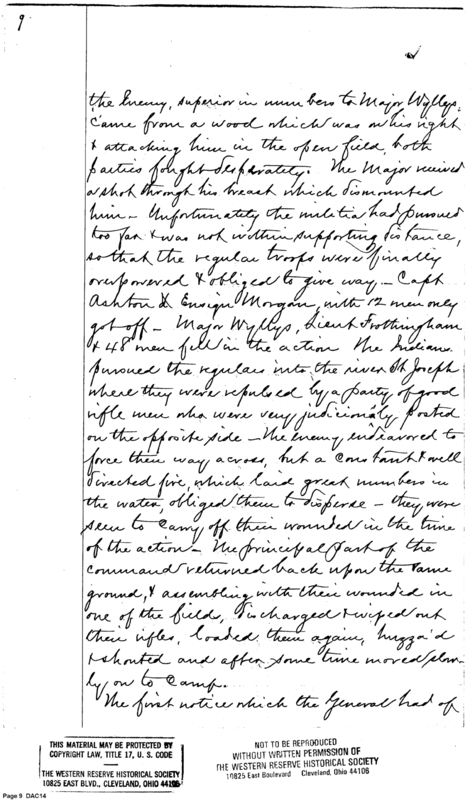 9
the Enemy, superior in numbers to Major Wyllys,
came from a wood which was on his right
& attacking him in the open field, both
parties fought desperately. The Major received
a shot through his breast which dismounted
him – Unfortunately the militia had pursued
too far & was not within supporting distance,
so that the regular troops were finally
overpowered & obliged to give way. – Capt
Ashton & Ensign Morgan, with 12 men only
got off – Major Wyllys, Lieut Frothingham
& 48 men fell in the action The Indians
pursued the regulars into the river St Joseph
where they were repulsed by a party of good
rifle men who were very judiciously posted
on the opposite side – The enemy endeavored to
force their way across, but a constant & well
directed fire, which laid great numbers in
the water, obliged them to disperse – they were
seen to carry off their wounded in the time
of the action – The principal part of the
command returned back upon the same
ground, & assembling with their wounded in
one of the field, discharged & wiped out
their rifles, loaded them again, huzza'd
& shouted and after some time moved slow-
ly on to Camp.
The first notice which the General had of
THIS MATERIAL MAY BE PROTECTED BY
COPYRIGHT LAW, TITLE 17, U. S. CODE
THE WESTERN RESERVE HISTORICAL SOCIETY
10825 EAST BLVD., CLEVELAND, OHIO 44106
NOT TO BE REPRODUCED
WITHOUT WRITTEN PERMISSION OF
THE WESTERN RESERVE HISTORICAL SOCIETY
10825 East Boulevard Cleveland, Ohio 44106
Page 9 DAC14